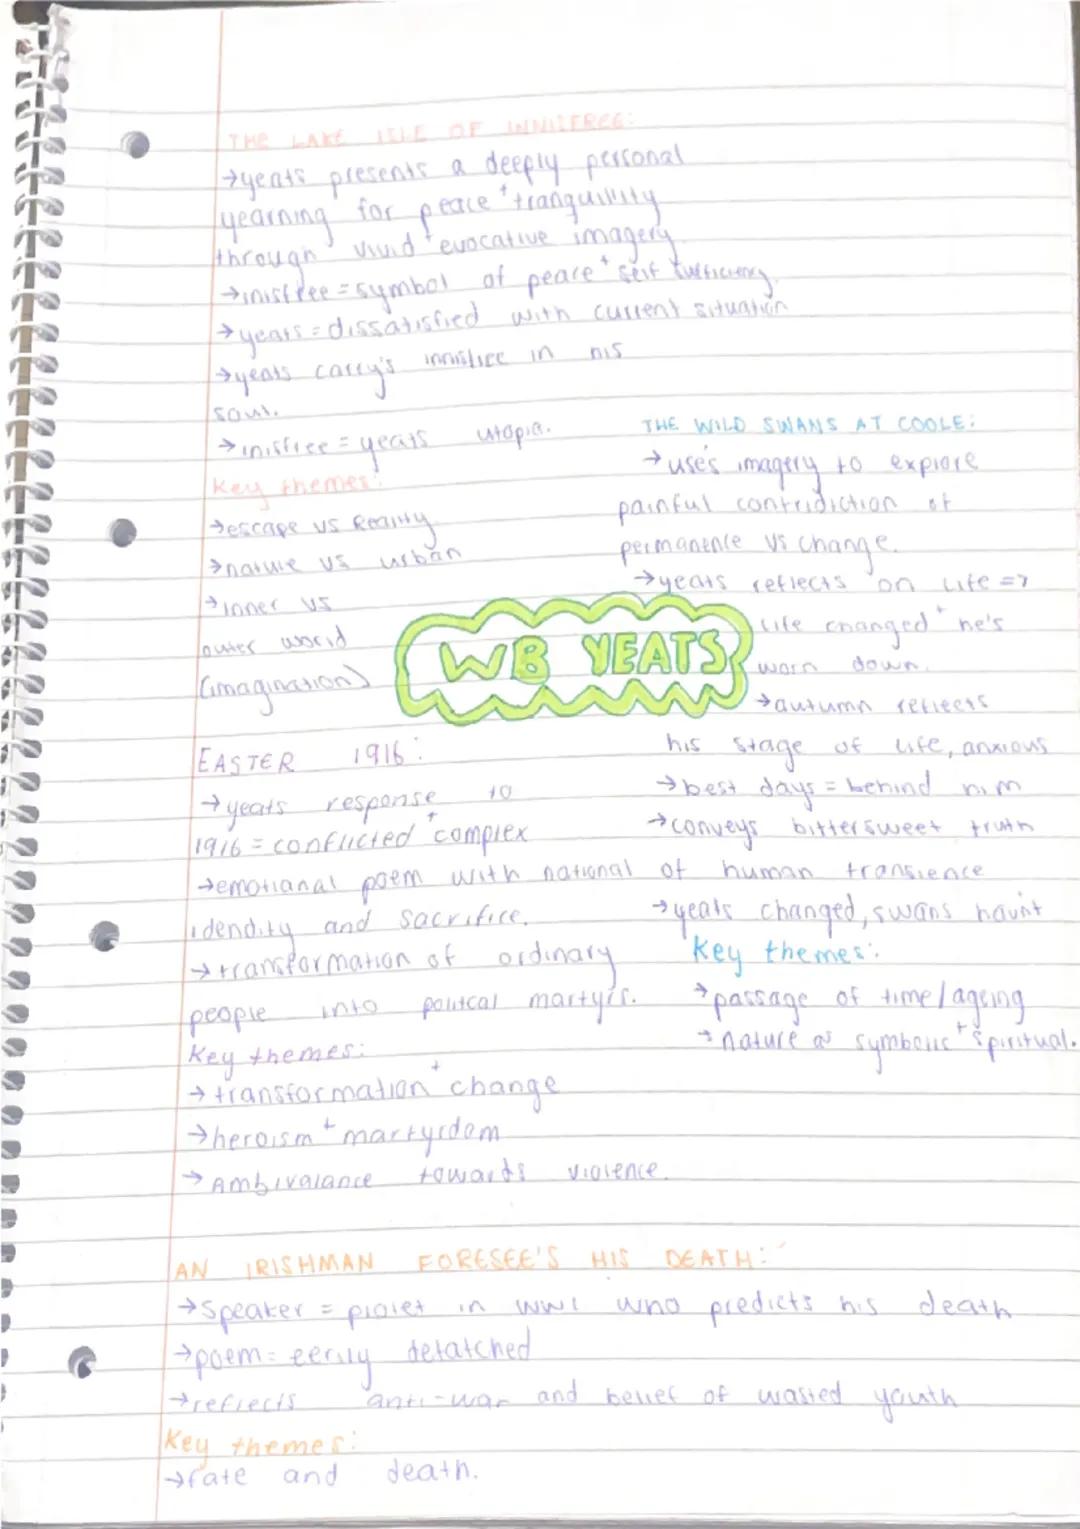 THE LAKE ISLE OF INNISFREE:
→yeats presents a deeply personal
yearning for peace + tranquillity
through vivid + evocative imagery.
→inisfree = symbol of peace + self sufficiency.
→yeats = dissatisfied with current situation
→yeats carry's innisfree in his
soul.
→inisfree = yeats utopia.
Key themes:
→escape vs Reality
→nature vs urban
→inner vs
outer world
(imagination)
WB YEATS
THE WILD SWANS AT COOLE:
→uses imagery to explore
painful contridiction of
permanence vs change.
→yeats reflects on life =>
life changed + he's
worn down.
→autumn reflects
his stage of life, anxious
→best days = behind him
→conveys bittersweet truth
of human transience
→yeats changed, swans haunt
Key themes:
→passage of time/ageing
→nature as symbolic + spiritual.
EASTER 1916:
→yeats response to
1916 = conflicted + complex
→emotional poem with national
idendity and sacrifice.
→transformation of ordinary
people into politcal martyrs.
Key themes:
→transformation + change
→heroism + martyrdom
→Ambivalance towards violence.
AN IRISHMAN FORESEE'S HIS DEATH:
→Speaker = pialet in WW1 who predicts his death
→poem = eerily detatched
→reflects anti-war and belief of wasted youth
Key themes:
→fate and death.